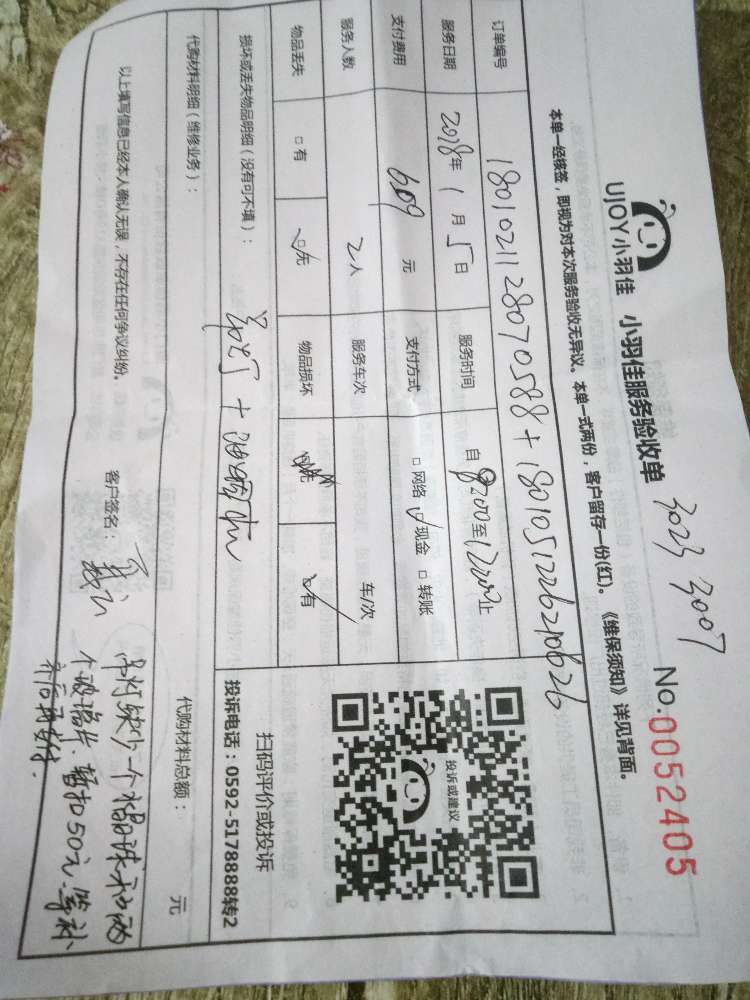 UJOY小羽佳 小羽佳服务验收单 3023 3007
No.0052405
本单一经核签,即视为对本次服务验收无导议。本单一式两份,客户留存一份(红)。《维保须知》详见背面。
订单编号 180102112807 0588+180105122621 0626
服务日期 2018年1月5日 服务时间 自9:00至12:00止
支付费用 609元 支付方式 □网络 ☑现金 □转账
服务人数 2人 服务车次 车/次
物品丢失 □有 ☑无 物品损坏 □无 ☑有
损坏或丢失物品明细(没有可不填):
代购材料明细(维修业务):
代购材料总额: 元
以上填写信息已经本人确认无误,不存在任何争议纠纷。 客户签名:
投诉或建议
扫码评价或投诉
投诉电话:0592-5178888转2
吊灯缺少一个水晶球和两
个玻璃片.暂扣50元.等补
齐后再支付.